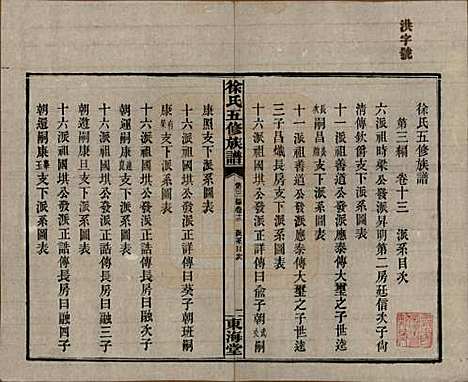 洪字號
徐氏五修族譜
第三編 卷十三 派系目次
六派祖時梁公發派昇朗第二房廷信次子尙
清傳欽爵支下派系圖表
十一派祖善道公發派應泰傳大璽之子世逵
長次嗣昌支下派系圖表
十一派祖善道公發派應泰傳大璽之子世逵
三子昌熾長房支下派系圖表
十六派祖國垬公發派正詳傳曰兪子朝斌嗣
徐氏五修族譜
第三編卷十三 派系目次
一
東海堂
康照支下派系圖表
十六派祖國垬公發派正詳傳曰葵子朝班嗣
康支下派系圖表
十六派祖國垬公發派正誥傳長房曰融次子
朝運嗣康旦支下派系圖表
十六派祖國垬公發派正誥傳長房曰融三子
朝選嗣康支下派系圖表
十六派祖國垬公發派正誥傳長房曰融四子
朝遒嗣康支下派系圖表